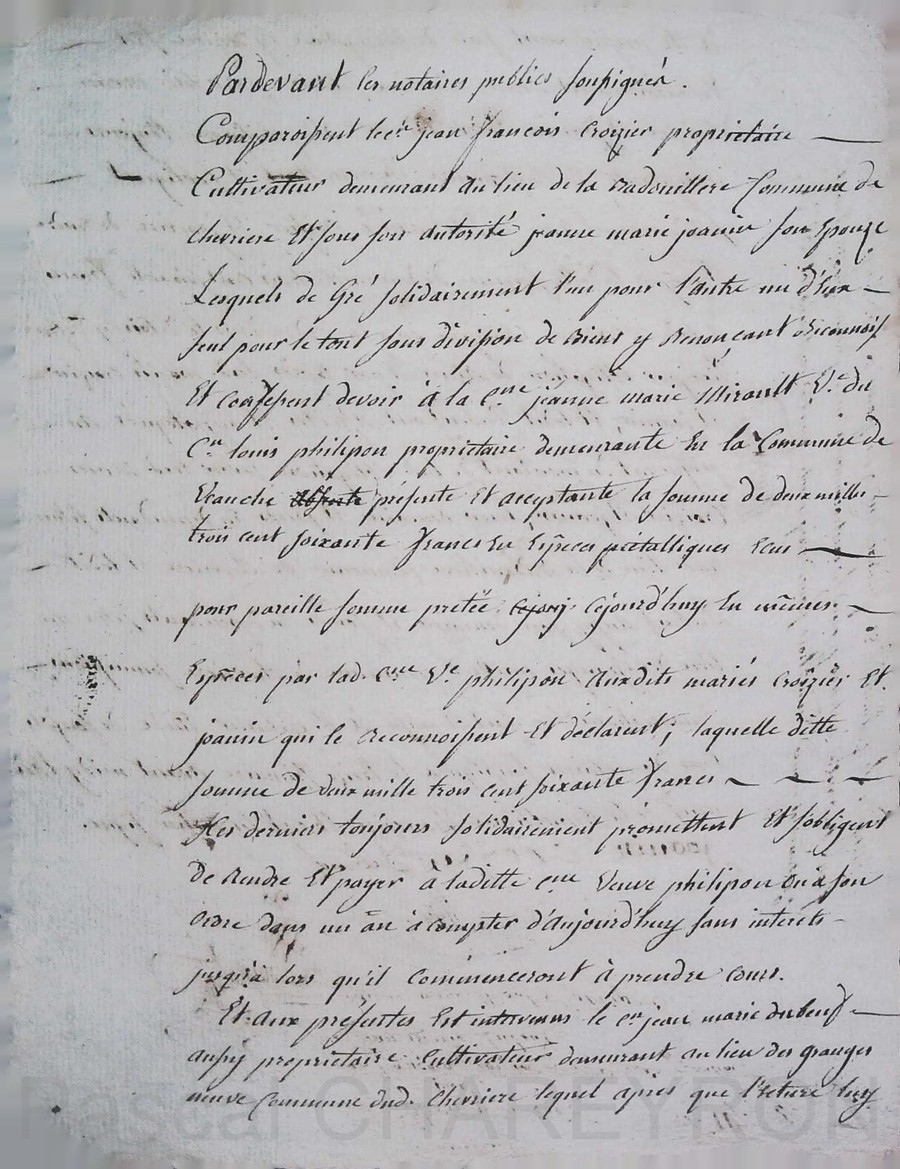 Pardevant les notaires publics soussignés.
Comparoissent le cen jean françois croizier proprietaire
Cultivateur demeurant au lieu de la radouillere Commune de
chevriere Et sous son autorité jeanne marie joanin son Epouze
Lesquels de Gré solidairement l'un pour l'autre un d'eux
seul pour le tout sans division de Biens y Renonçant Reconnoiss
Et confessent devoir à la cne jeanne marie Mirault Ve du
Cn louis philipon proprietaire demeurante En la Commune de
présente Et acceptante la somme de deux mille
trois cent soixante francs En Espèces métalliques Ecus
pour pareille somme pretée cejourd'huy En mêmes
Espèces par lad. cne Ve philipon Auxdits mariés croizier Et
joanin qui le Reconnoissent Et déclarent; laquelle ditte
somme de deux mille trois cent soixante francs
ces derniers toujours solidairement promettent Et s'obligent
de Rendre Et payer à laditte cne Veuve philipon ou à son
ordre dans un an à compter d'aujourd'huy sans interêts
jusqu'à lors qu'il commenceront à prendre cours.
Et aux présentes Est intervenus le cn jean marie dubeuf
aussy proprietaire Cultivateur demeurant au lieu des granges
neuve Commune dud. Chevriere lequel apres que l'écture luy
CHAREYRON